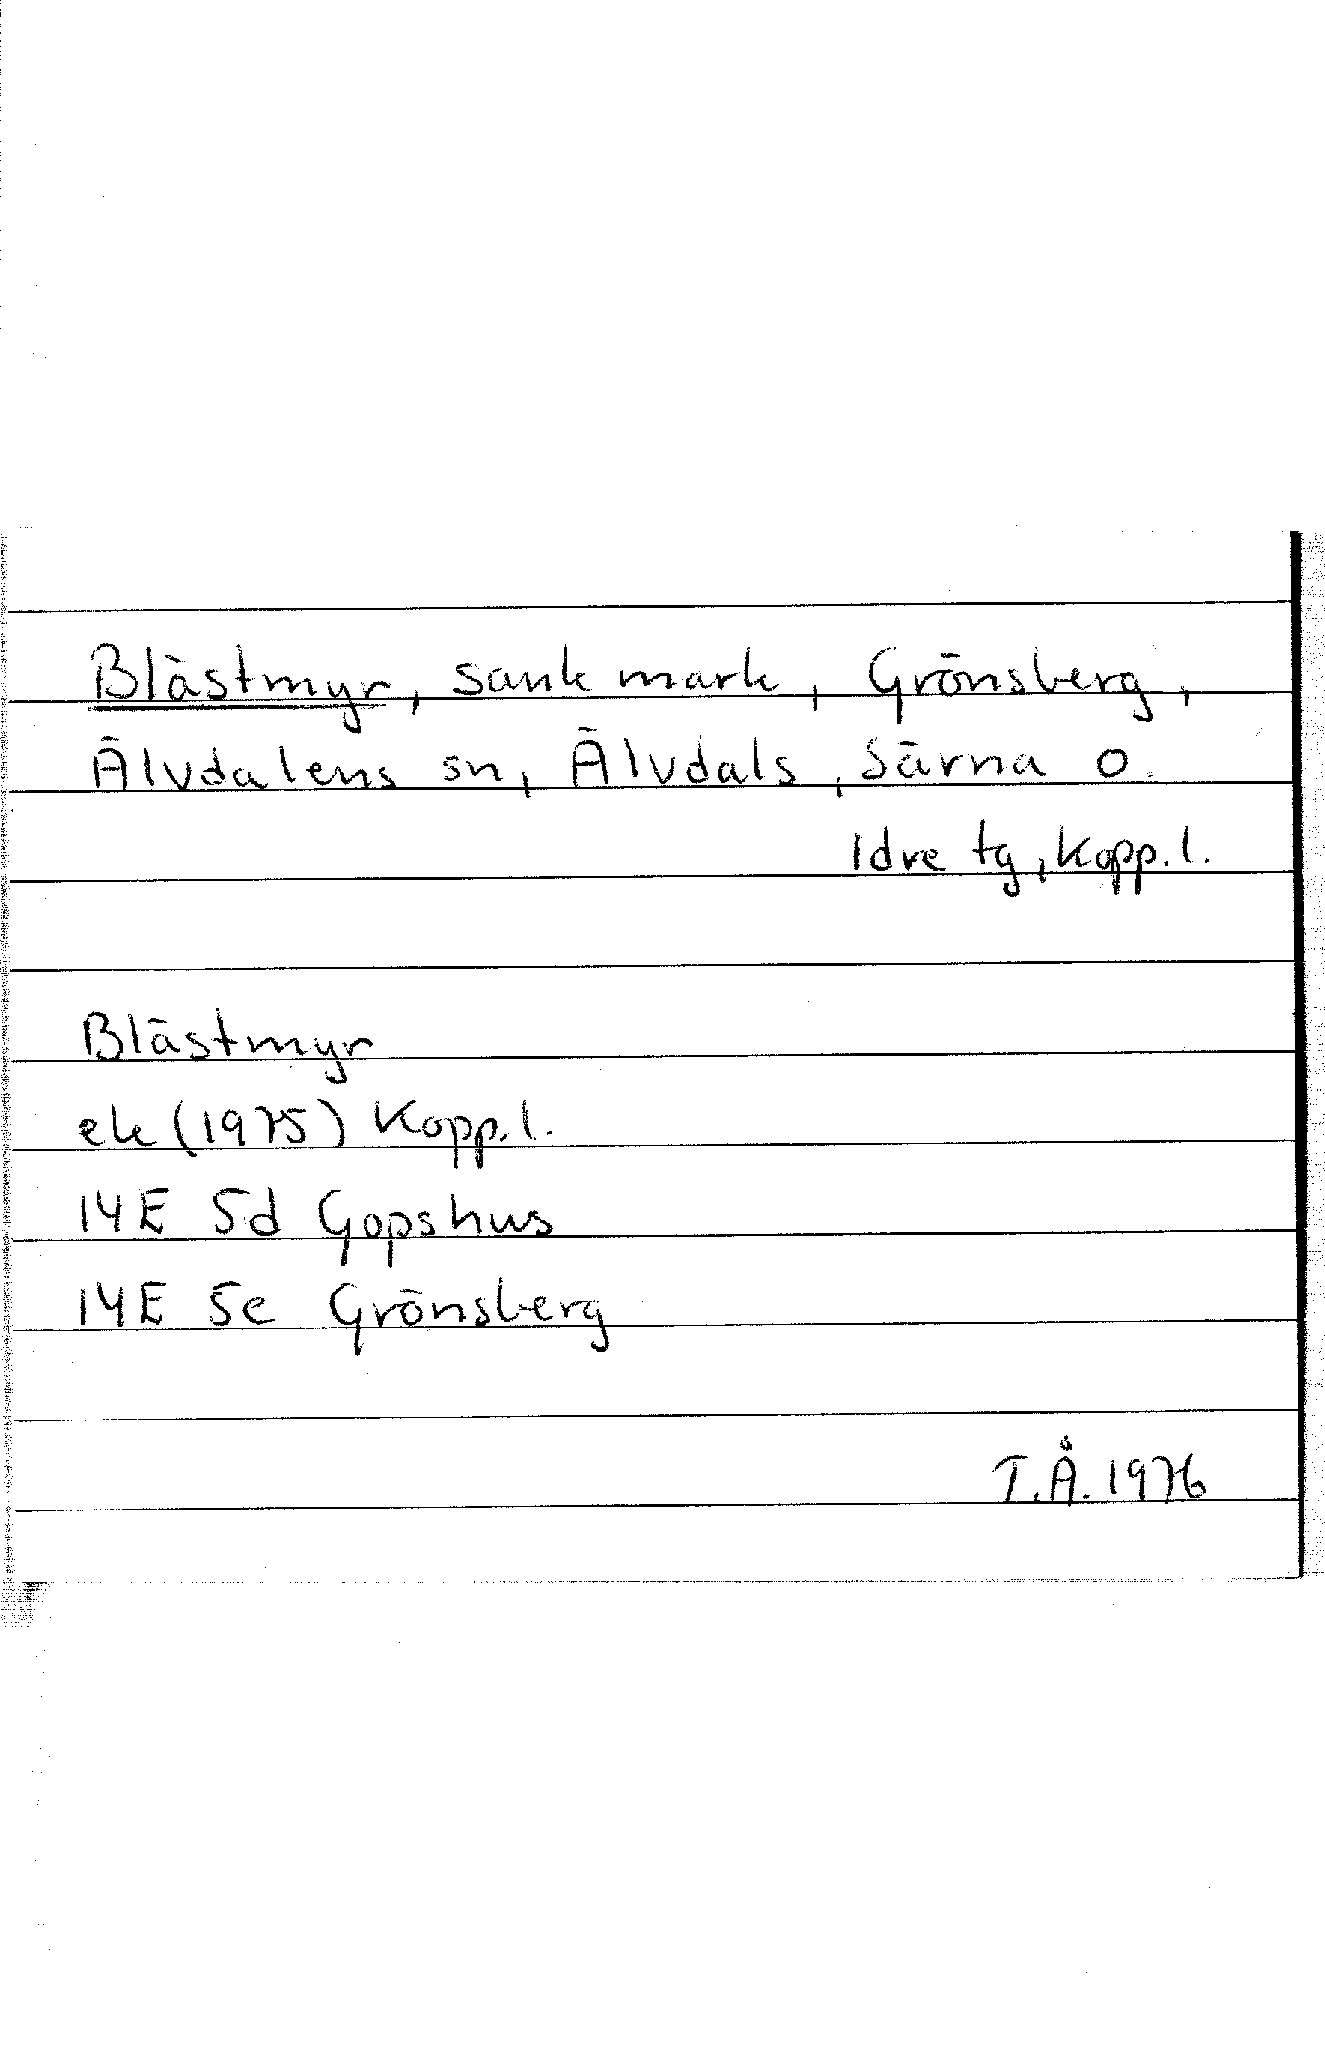 Blästmyr, sank mark, Grönsberg,
Älvdalens sn, Älvdals, Särna o.
Idre tg, Kopp. l.
Blästmyr
ek (1975) Kopp. l.
14E 5d Gopshus
14E 5e Grönsberg
T.Å. 1976